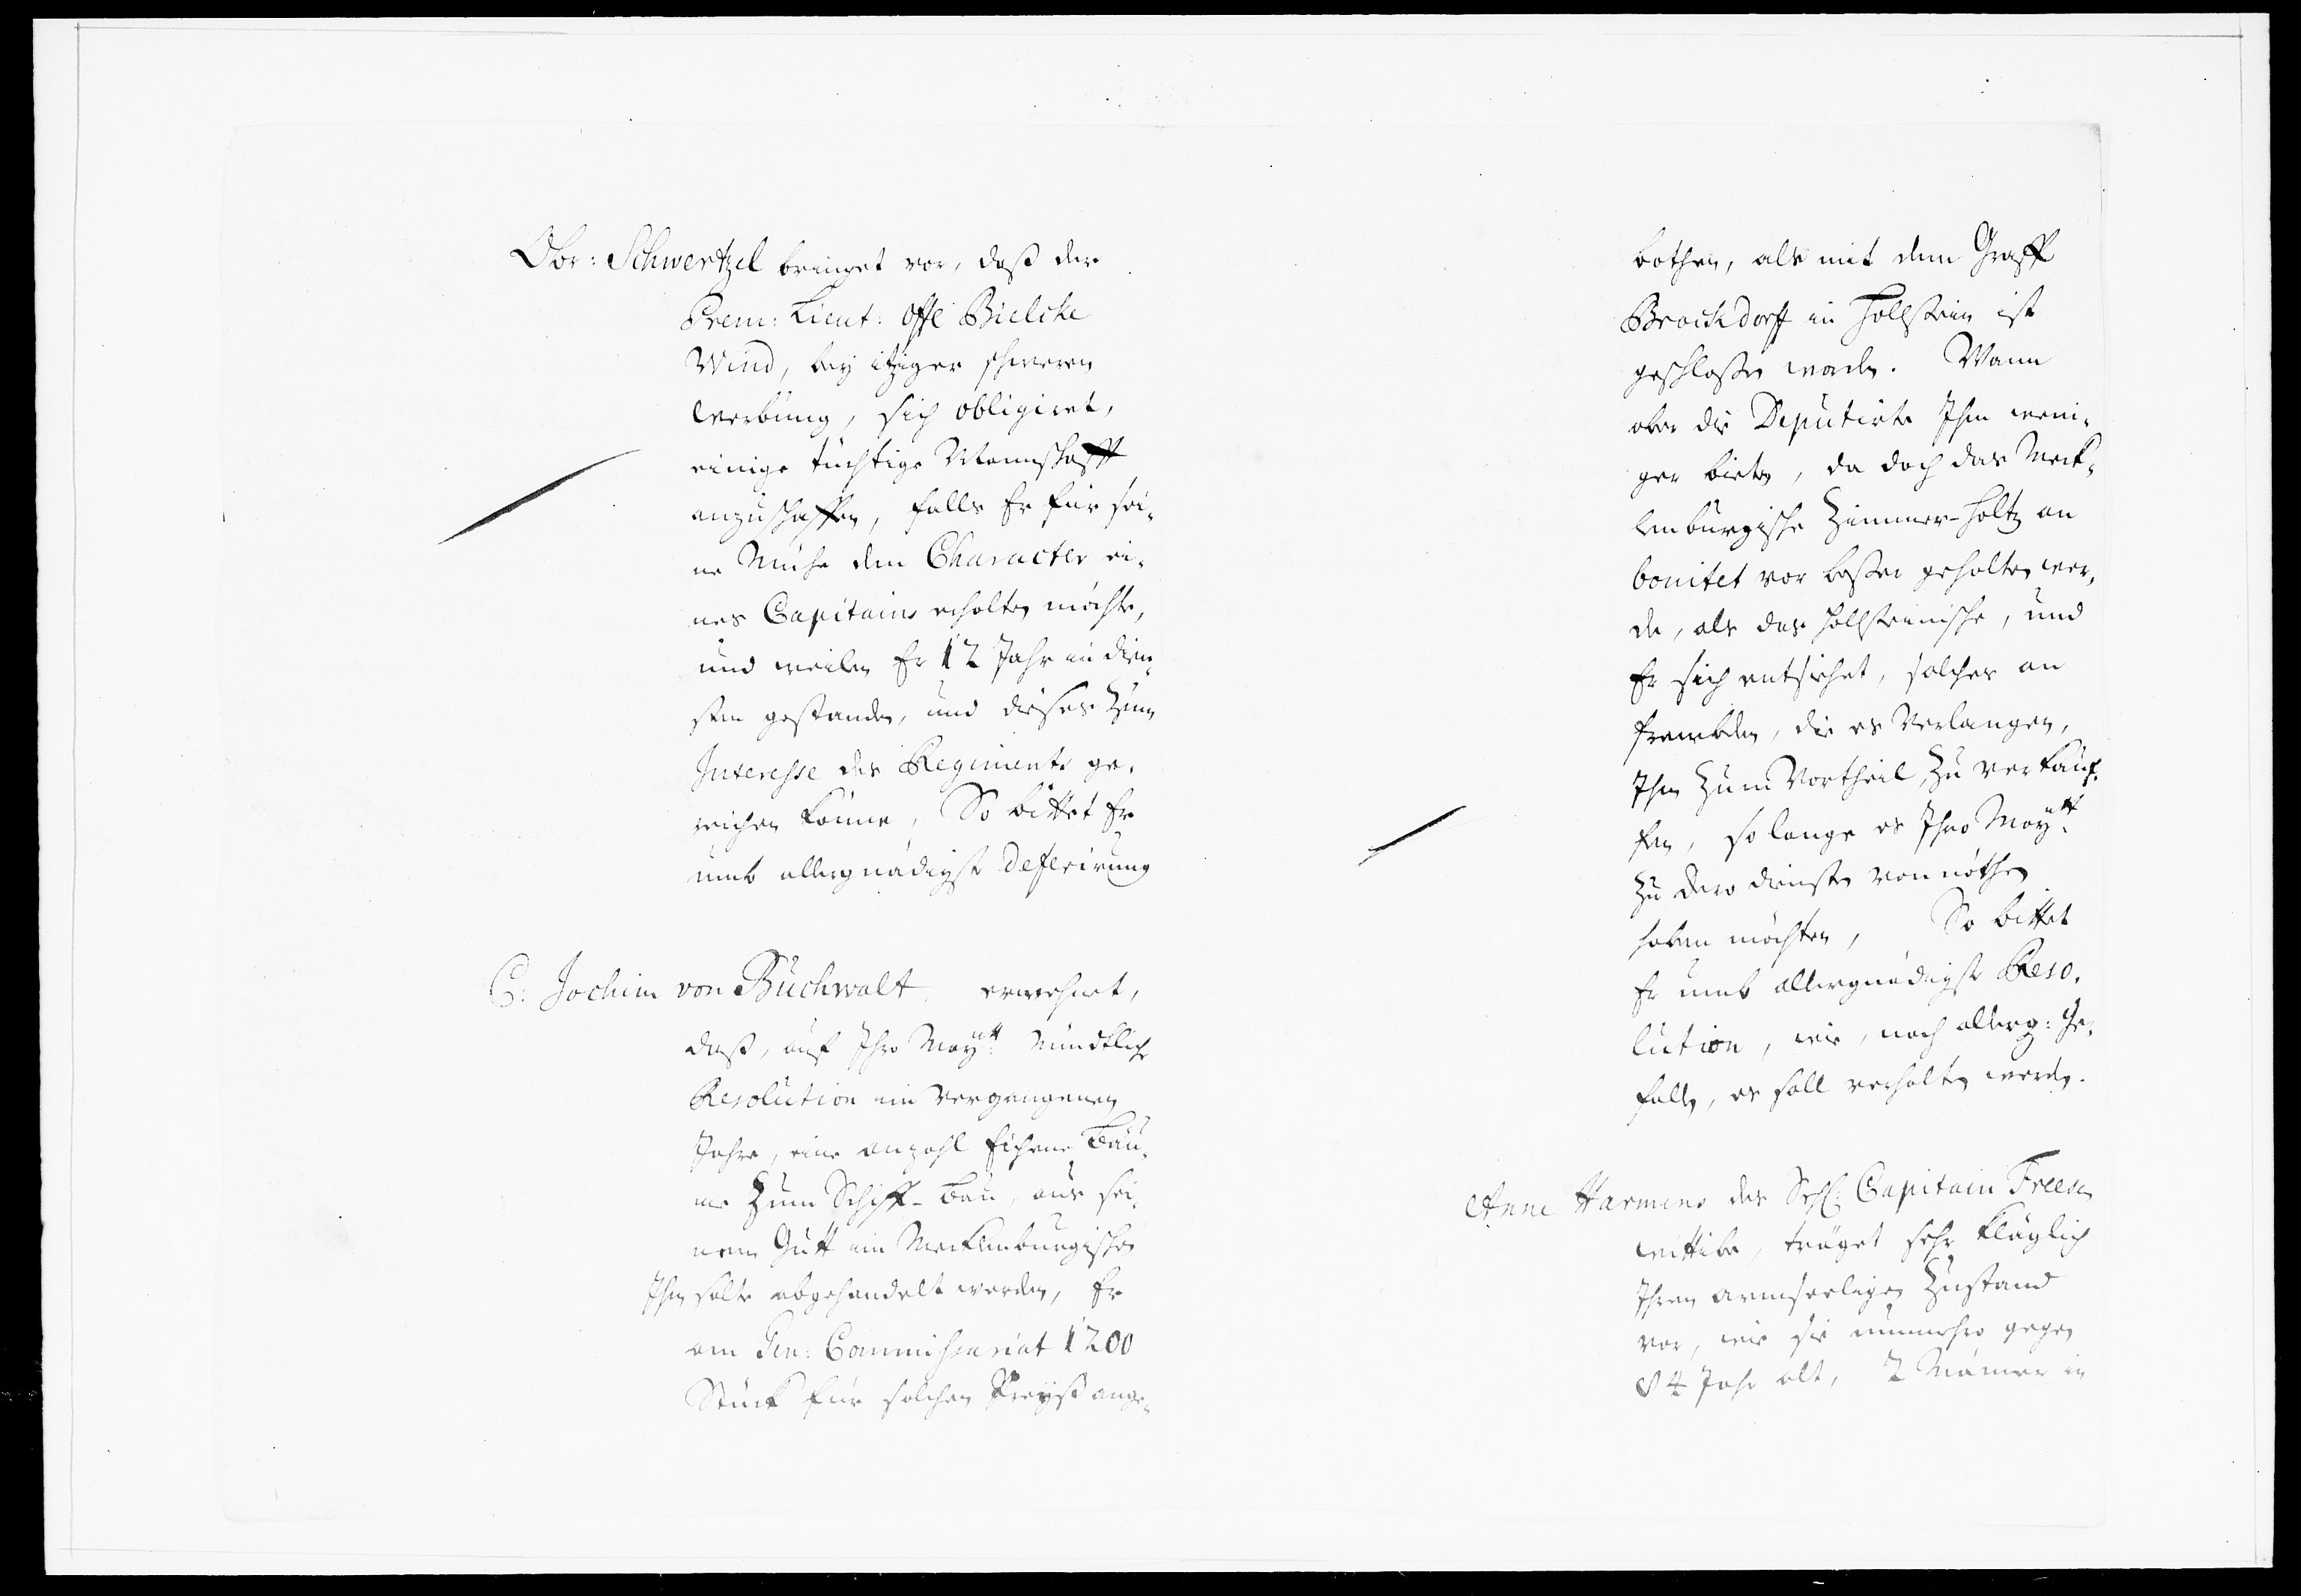 Obr: Schwertzel bringet vor, daß der
Prem: Lieut: Offe Bielcke
Wind, bey itziger schweren
Werbung, sich obligiret,
einige tüchtige Mannschafft
anzuschaffen, falls Er für sei-
ne Mühe den Character ei-
nes Capitains erhalten möchte,
und weilen Er 12 Jahr in dien-
sten gestanden, und dieses zum
Interesse des Regiments ge-
reichen könne, So bittet Er
umb allergnädigste deferirung
C: Jochim von Buchwalt, erwehnet,
daß, auf Ihro Maytt: Mündtliche
Resolution im vergangenen
Jahre, eine anzahl Eichene Bäu-
me zum Schiff-Bau, aus sei-
nem Gutt im Mecklenburgischen
Ihm solte abgehandelt werden, Er
am Gen: Commissariat 1200
Stück für solchen Preyß ange-
bothen, als mit dem Graff
Brockdorff in Hollstein ist
geschloßen worden. Wann
aber die Deputirte Ihm weni-
ger bieten, da doch das Meck-
lenburgische Zimmer-Holtz an
bonitet vor beßer gehalten wer-
de, als das Hollsteinische, und
Er sich entsiehet, solches an
frembden, die es verlangen,
Ihm zum Vortheil, zu verkauf-
fen, so lange es Ihro Maytt:
zu dero diensten von nöthen
haben möchten, So bittet
Er umb allergnädigste Reso-
lution, wie, nach allerg: Ge-
fallen, es soll verhalten werden.
Anne Harmens des Sehl: Capitain Freesen
Wittibe, träget sehr kläglich
Ihren armseeligen Zustand
vor, wie sie nunmehro gegen
84 Jahr alt, 2 Männer in